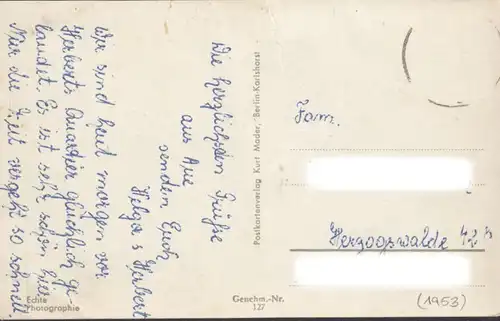 Die herzlichsten Grüße
aus Aue
senden Euch
Helga & Herbert
Wir sind heut morgen vor
Herberts Quartier glücklich ge-
landet. Es ist sehr schön hier
Nur die Zeit vergeht so schnell.
Echte
Photographie
Postkartenverlag Kurt Mader, Berlin-Karlshorst
Genehm.-Nr.
127
Fam.
42 h
(1953)